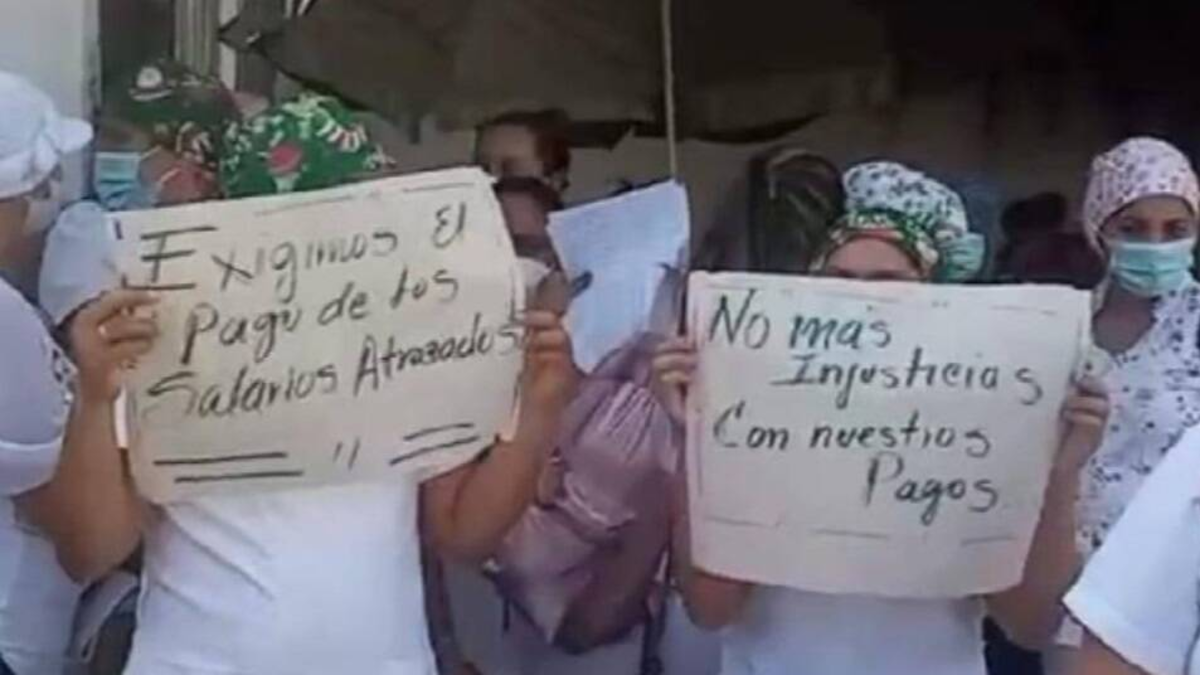 Exigimos El
Pago de los
Salarios Atrazados
No mas
Injusticias
Con nuestros
Pagos